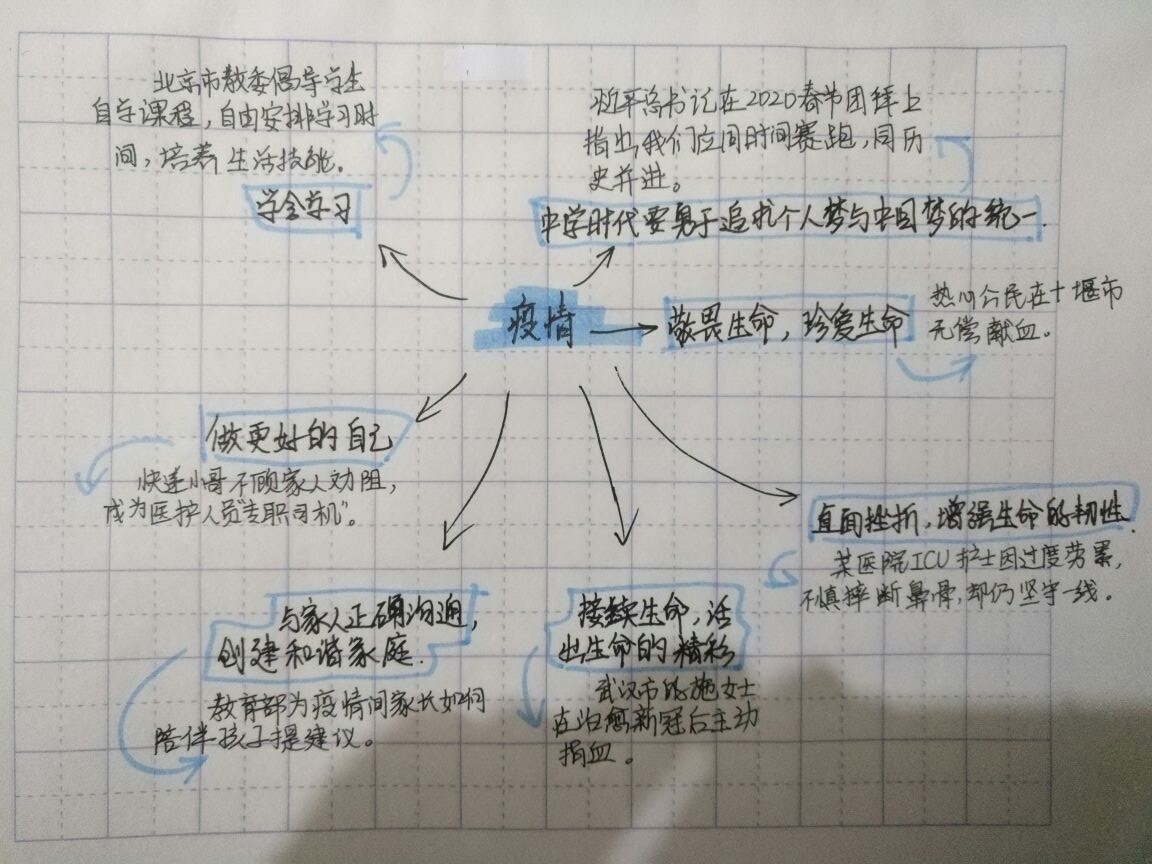 北京市教委倡导学生
自学课程，自由安排学习时
间，培养生活技能。
学会学习
习近平总书记在2020春节团拜上
指出，我们应同时间赛跑，同历
史并进。
中学时代要勇于追求个人梦与中国梦的统一.
疫情
敬畏生命，珍爱生命
热心公民在十堰市
无偿献血。
做更好的自己
快递小哥不顾家人劝阻，
成为医护人员“专职司机”。
直面挫折，增强生命的韧性.
某医院ICU护士因过度劳累，
不慎摔断鼻骨，却仍坚守一线。
与家人正确沟通，
创建和谐家庭.
教育部为疫情间家长如何
陪伴孩子提建议。
接续生命，活
出生命的精彩
武汉市的施女士
在治愈新冠后主动
捐血。